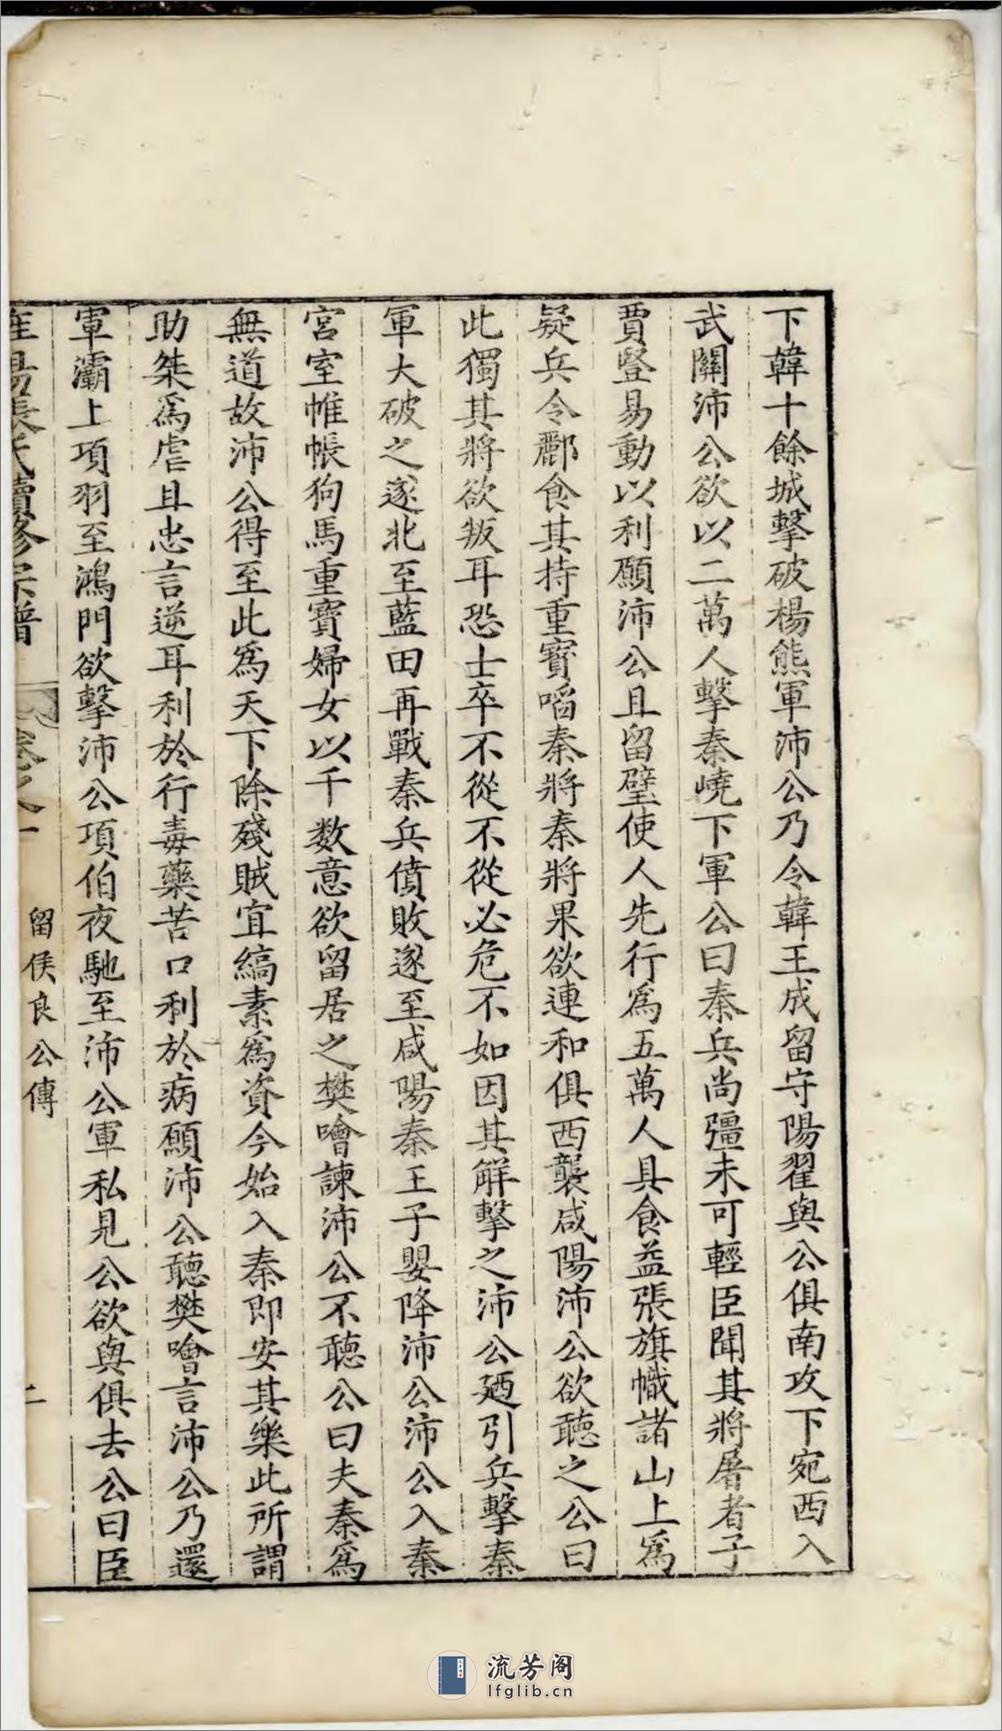 下韓十餘城擊破楊熊軍沛公乃令韓王成留守陽翟與公俱南攻下宛西入
武關沛公欲以二萬人擊秦嶢下軍公曰秦兵尚彊未可輕臣聞其將屠者子
賈豎易動以利願沛公且留壁使人先行爲五萬人具食益張旗幟諸山上爲
疑兵令酈食其持重寶啗秦將秦將果欲連和俱西襲咸陽沛公欲聽之公曰
此獨其將欲叛耳恐士卒不從不從必危不如因其解擊之沛公廼引兵擊秦
軍大破之遂北至藍田再戰秦兵僨敗遂至咸陽秦王子嬰降沛公沛公入秦
宮室帷帳狗馬重寶婦女以千数意欲留居之樊噲諫沛公不聽公曰夫秦爲
無道故沛公得至此爲天下除殘賊宜縞素爲資今始入秦即安其樂此所謂
助桀爲虐且忠言逆耳利於行毒藥苦口利於病願沛公聽樊噲言沛公乃還
軍灞上項羽至鴻門欲擊沛公項伯夜馳至沛公軍私見公欲與俱去公曰臣
張氏續修宗譜
卷之一
留侯良公傳
二
流芳阁
lfglib.cn